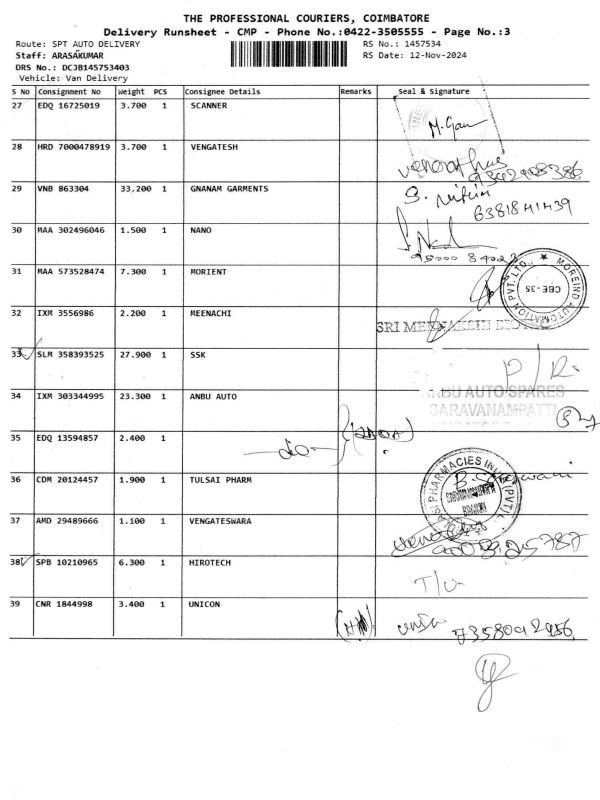 THE PROFESSIONAL COURIERS, COIMBATORE
Delivery Runsheet - CMP - Phone No.:0422-3505555 - Page No.:3
Route: SPT AUTO DELIVERY RS No.: 1457534
Staff: ARASAKUMAR RS Date: 12-Nov-2024
DRS No.: DC3B145753403
Vehicle: Van Delivery
S No Consignment No Weight PCS Consignee Details Remarks Seal & Signature
27 EDQ 16725019 3.700 1 SCANNER
28 HRD 7000478919 3.700 1 VENGATESH
29 VNB 863304 33,200 1 GNANAM GARMENTS
6381841439
30 MAA 302496046 1.500 1 NANO
31 MAA 573528474 7.300 1 MORIENT
MOREIND AUTOMATION PVT. LTD., CBE-35
32 IXM 3556986 2.200 1 MEENACHI
33 SLM 358393525 27.900 1 SSK
P/R
34 IXM 303344995 23.300 1 ANBU AUTO
ANBU AUTO SPARES
SARAVANAMPATTI
35 EDQ 13594857 2.400 1
36 CDM 20124457 1.900 1 TULSAI PHARM
37 AMD 29489666 1.100 1 VENGATESWARA
38 SPB 10210965 6.300 1 HIROTECH
39 CNR 1844998 3.400 1 UNICON